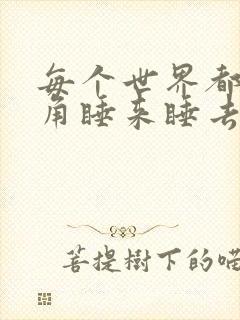 每个世界都
角睡来睡去
菩提樹下的喵